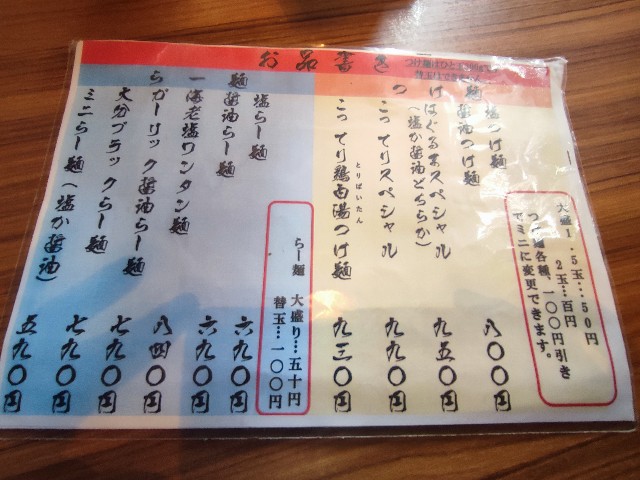 お品書き
大盛1.5玉…50円
2玉…百円
つけ麺各種、一〇〇円引き
でミニに変更できます。
塩つけ麺
醤油つけ麺
八〇〇円
つけはぐるまスペシャル
(塩か醤油どちらか)
九五〇円
こってりスペシャル
九九〇円
こってり鶏白湯つけ麺
とりぱいたん
九三〇円
らー麺 大盛り…五十円
替玉…一〇〇円
塩らー麺
六九〇円
醤油らー麺
六九〇円
海老塩ワンタン麺
八四〇円
ガーリック醤油らー麺
七九〇円
大分ブラックらー麺
七九〇円
ミニらー麺(塩か醤油)
五九〇円